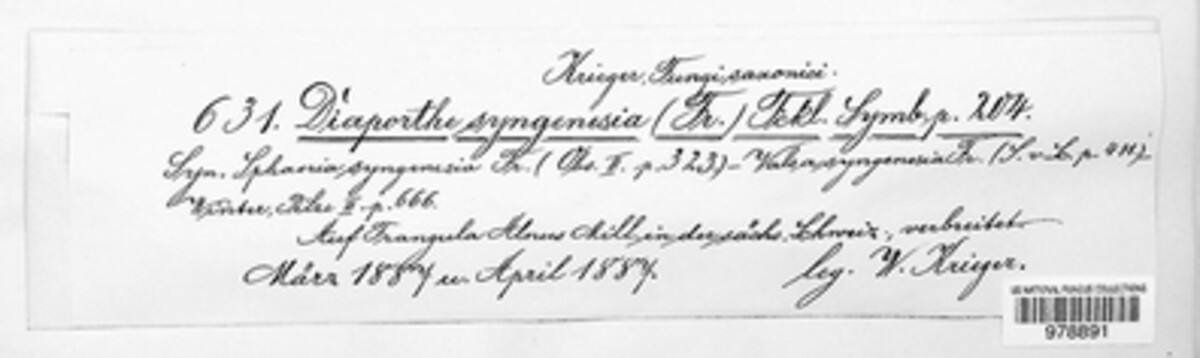 Krieger, Fungi saxonici.
631. Diaporthe syngenesia (Fr.) Fckl. Symb. p. 204.
Syn. Sphaeria syngenesia Fr. (Obs. II. p. 323) – Valsa syngenesia Fr. (S. v. S. p. 411)
Winter, Pilze II. p. 666.
Auf Frangula Alnus Mill. in der sächs. Schweiz, verbreitet.
März 1887 u. April 1887.
leg. W. Krieger.
US NATIONAL FUNGUS COLLECTIONS
978891